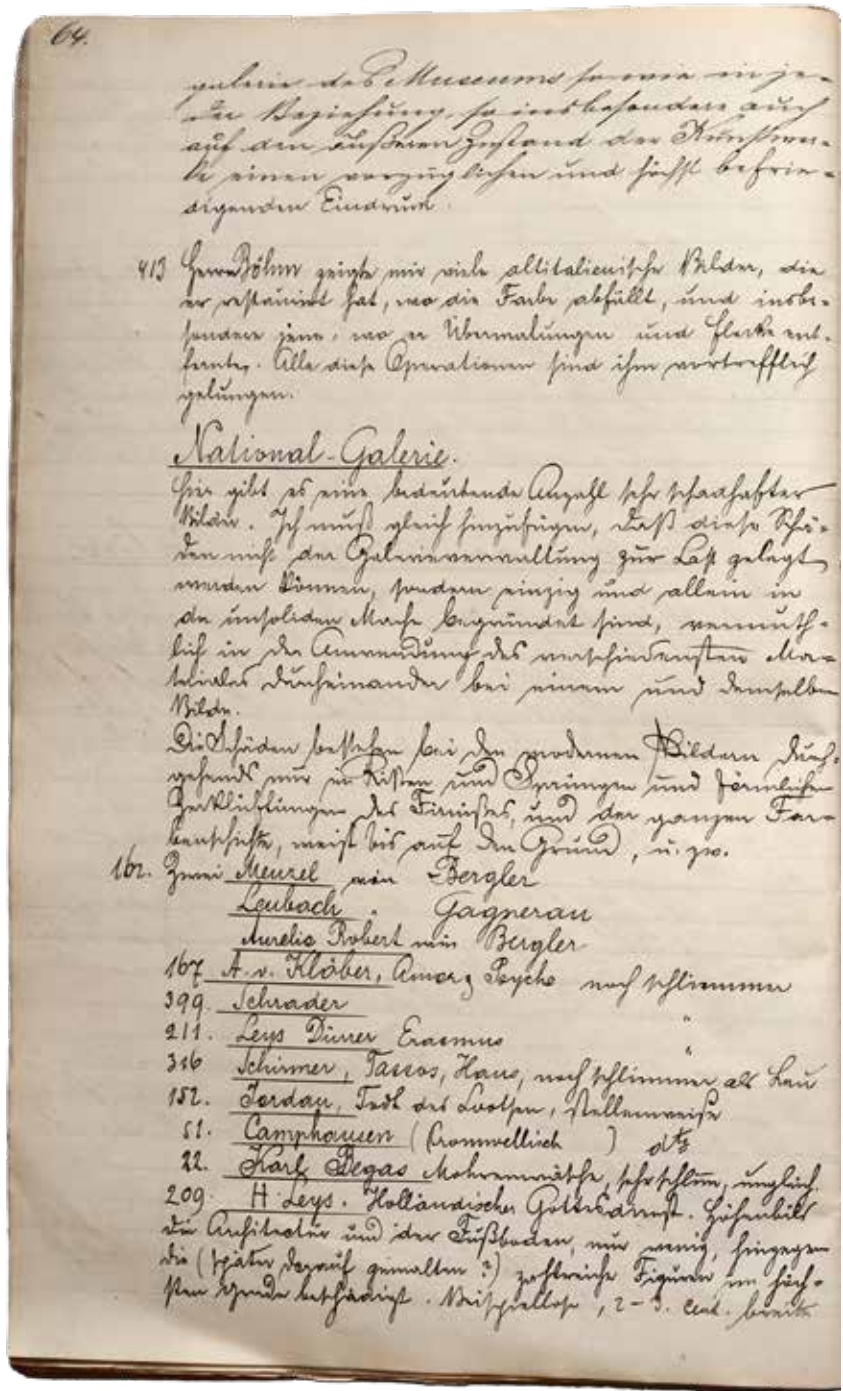 64.
galerie des Museums sowie in je-
der Beziehung so insbesondere auch
auf den äußeren Zustand der Kunstwer-
ke einen vorzüglichen und höchst befrie-
digenden Eindruck.
413 Herr Böhm zeigte mir viele altitalienische Bilder, die
er restaurirt hat, wo die Farbe abfällt, und insbe-
sondere jene, wo er Übermalungen und Flecke ent-
fernte. Alle diese Operationen sind ihm vortrefflich
gelungen.
National-Galerie.
Hier gibt es eine bedeutende Anzahl sehr schadhafter
Bilder. Ich muß gleich hinzufügen, daß diese Schä-
den nicht der Galerieverwaltung zur Last gelegt
werden können, sondern einzig und allein in
der unsoliden Mache begründet sind, vermuth-
lich in der Anwendung des verschiedensten Ma-
teriales durcheinander bei einem und demselben
Bilde.
Die Schäden bestehen bei den modernen Bildern durch-
gehends nur in Rißen und Sprüngen und förmlichen
Zerklüftungen des Firnißes, und der ganzen Far-
benschichte, meist bis auf den Grund, u. zw.
162. Zwei Menzel wie Bergler
Lenbach " Gagnerau
Aurelio Robert wie Bergler
167 A. v. Klöber, Amor, Psyche noch schlimmer
399. Schrader "
211. Leys Dürer Erasmus "
316 Schirmer, Tassos, Haus, noch schlimmer als
152. Jordan, Tod des Lootsen, stellenweise
51. Camphausen (Cromwellisch ) dto
22. Karl Begas Mohrenwäsche, sehr schlim, unglich.
209. H. Leys. Holländischer Gottesdienst. Höhenbild
die Architectur und der Fußboden, nur wenig, hingegen
die (später darauf gemalten?) zahlreiche Figuren im höch-
sten Grade beschädigt. Beispiellose, 2-3. cent. breite